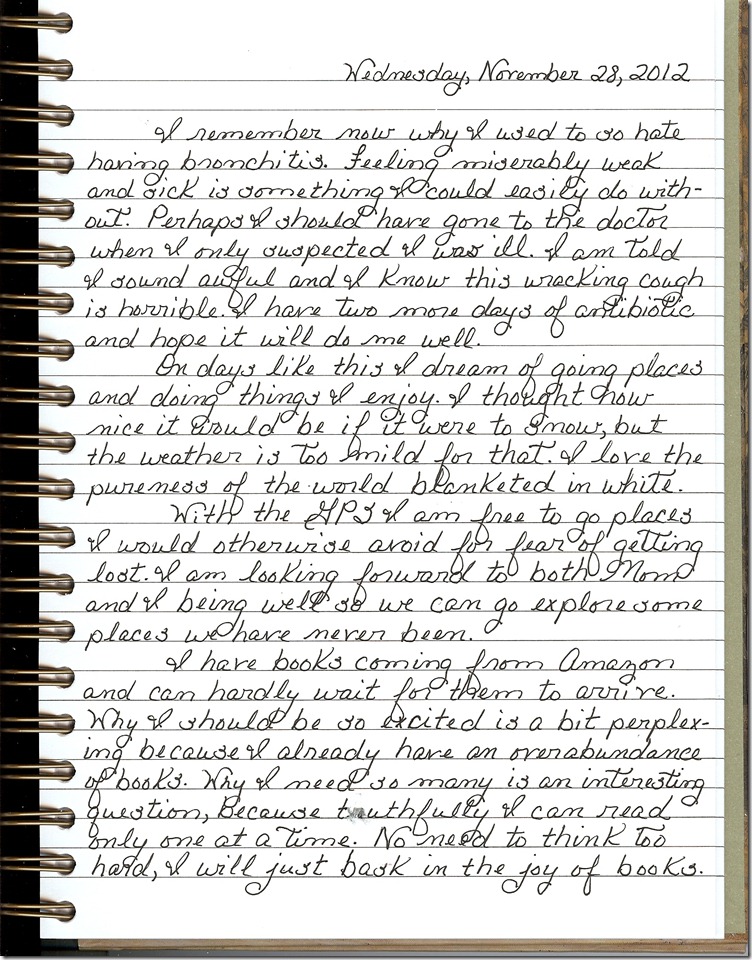 Wednesday, November 28, 2012
I remember now why I used to so hate
having bronchitis. Feeling miserably weak
and sick is something I could easily do with-
out. Perhaps I should have gone to the doctor
when I only suspected I was ill. I am told
I sound awful and I know this wracking cough
is horrible. I have two more days of antibiotic
and hope it will do me well.
On days like this I dream of going places
and doing things I enjoy. I thought how
nice it would be if it were to snow, but
the weather is too mild for that. I love the
pureness of the world blanketed in white.
With the GPS I am free to go places
I would otherwise avoid for fear of getting
lost. I am looking forward to both Mom
and I being well so we can go explore some
places we have never been.
I have books coming from Amazon
and can hardly wait for them to arrive.
Why I should be so excited is a bit perplex-
ing because I already have an overabundance
of books. Why I need so many is an interesting
question, because truthfully I can read
only one at a time. No need to think too
hard, I will just bask in the joy of books.